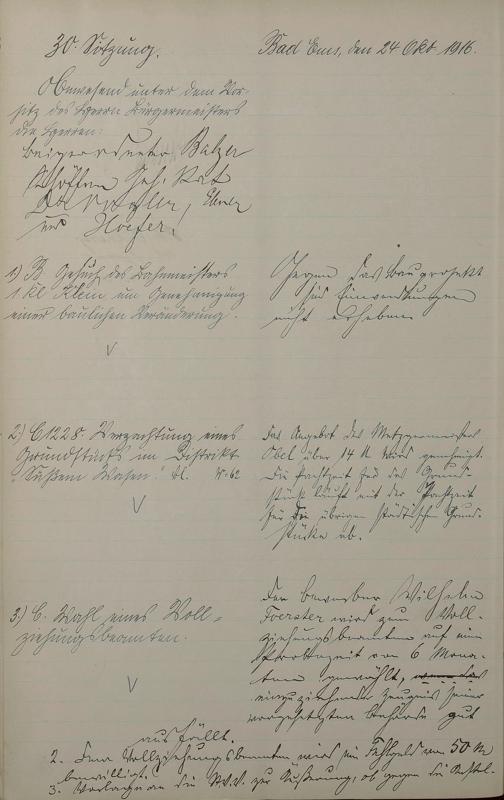 30. Sitzung.
Bad Ems, den 24 Okt 1916.
Anwesend unter dem Vor-
sitz des Herrn Bürgermeisters
die Herren:
Beigeordneter Balzer
Schöffen Geh. Rat
Dr Vogler, Eberle
und Hoefer.
1) B Gesuch des Bahnmeisters
1 Kl Klein um Genehmigung
einer baulichen Veränderung.
Gegen das Bauprojekt
sind Einwendungen
nicht erhoben
2) C 1228. Verpachtung eines
Grundstücks im Distrikt
"Süßem Wasen." Bl. N° 62
Das Angebot des Metzgermeisters
Obel über 14 M wird genehmigt.
Die Pachtzeit für das Grund-
stück läuft mit der Pachtzeit
für die übrigen städtischen Grund-
stücke ab.
3.) C. Wahl eines Voll-
ziehungsbeamten.
Der Bewerber Wilhelm
Foerster wird zum Voll-
ziehungsbeamten auf eine
Probezeit von 6 Mona-
ten gewählt,
einzuziehende Zeugnis seiner
vorgesetzten Behörde gut
ausfällt.
2. Dem Vollziehungsbeamten wird ein Fehlgeld von 50 M
bewilligt.
3. Vorlage an die St.V.V. zur Äußerung, ob gegen die